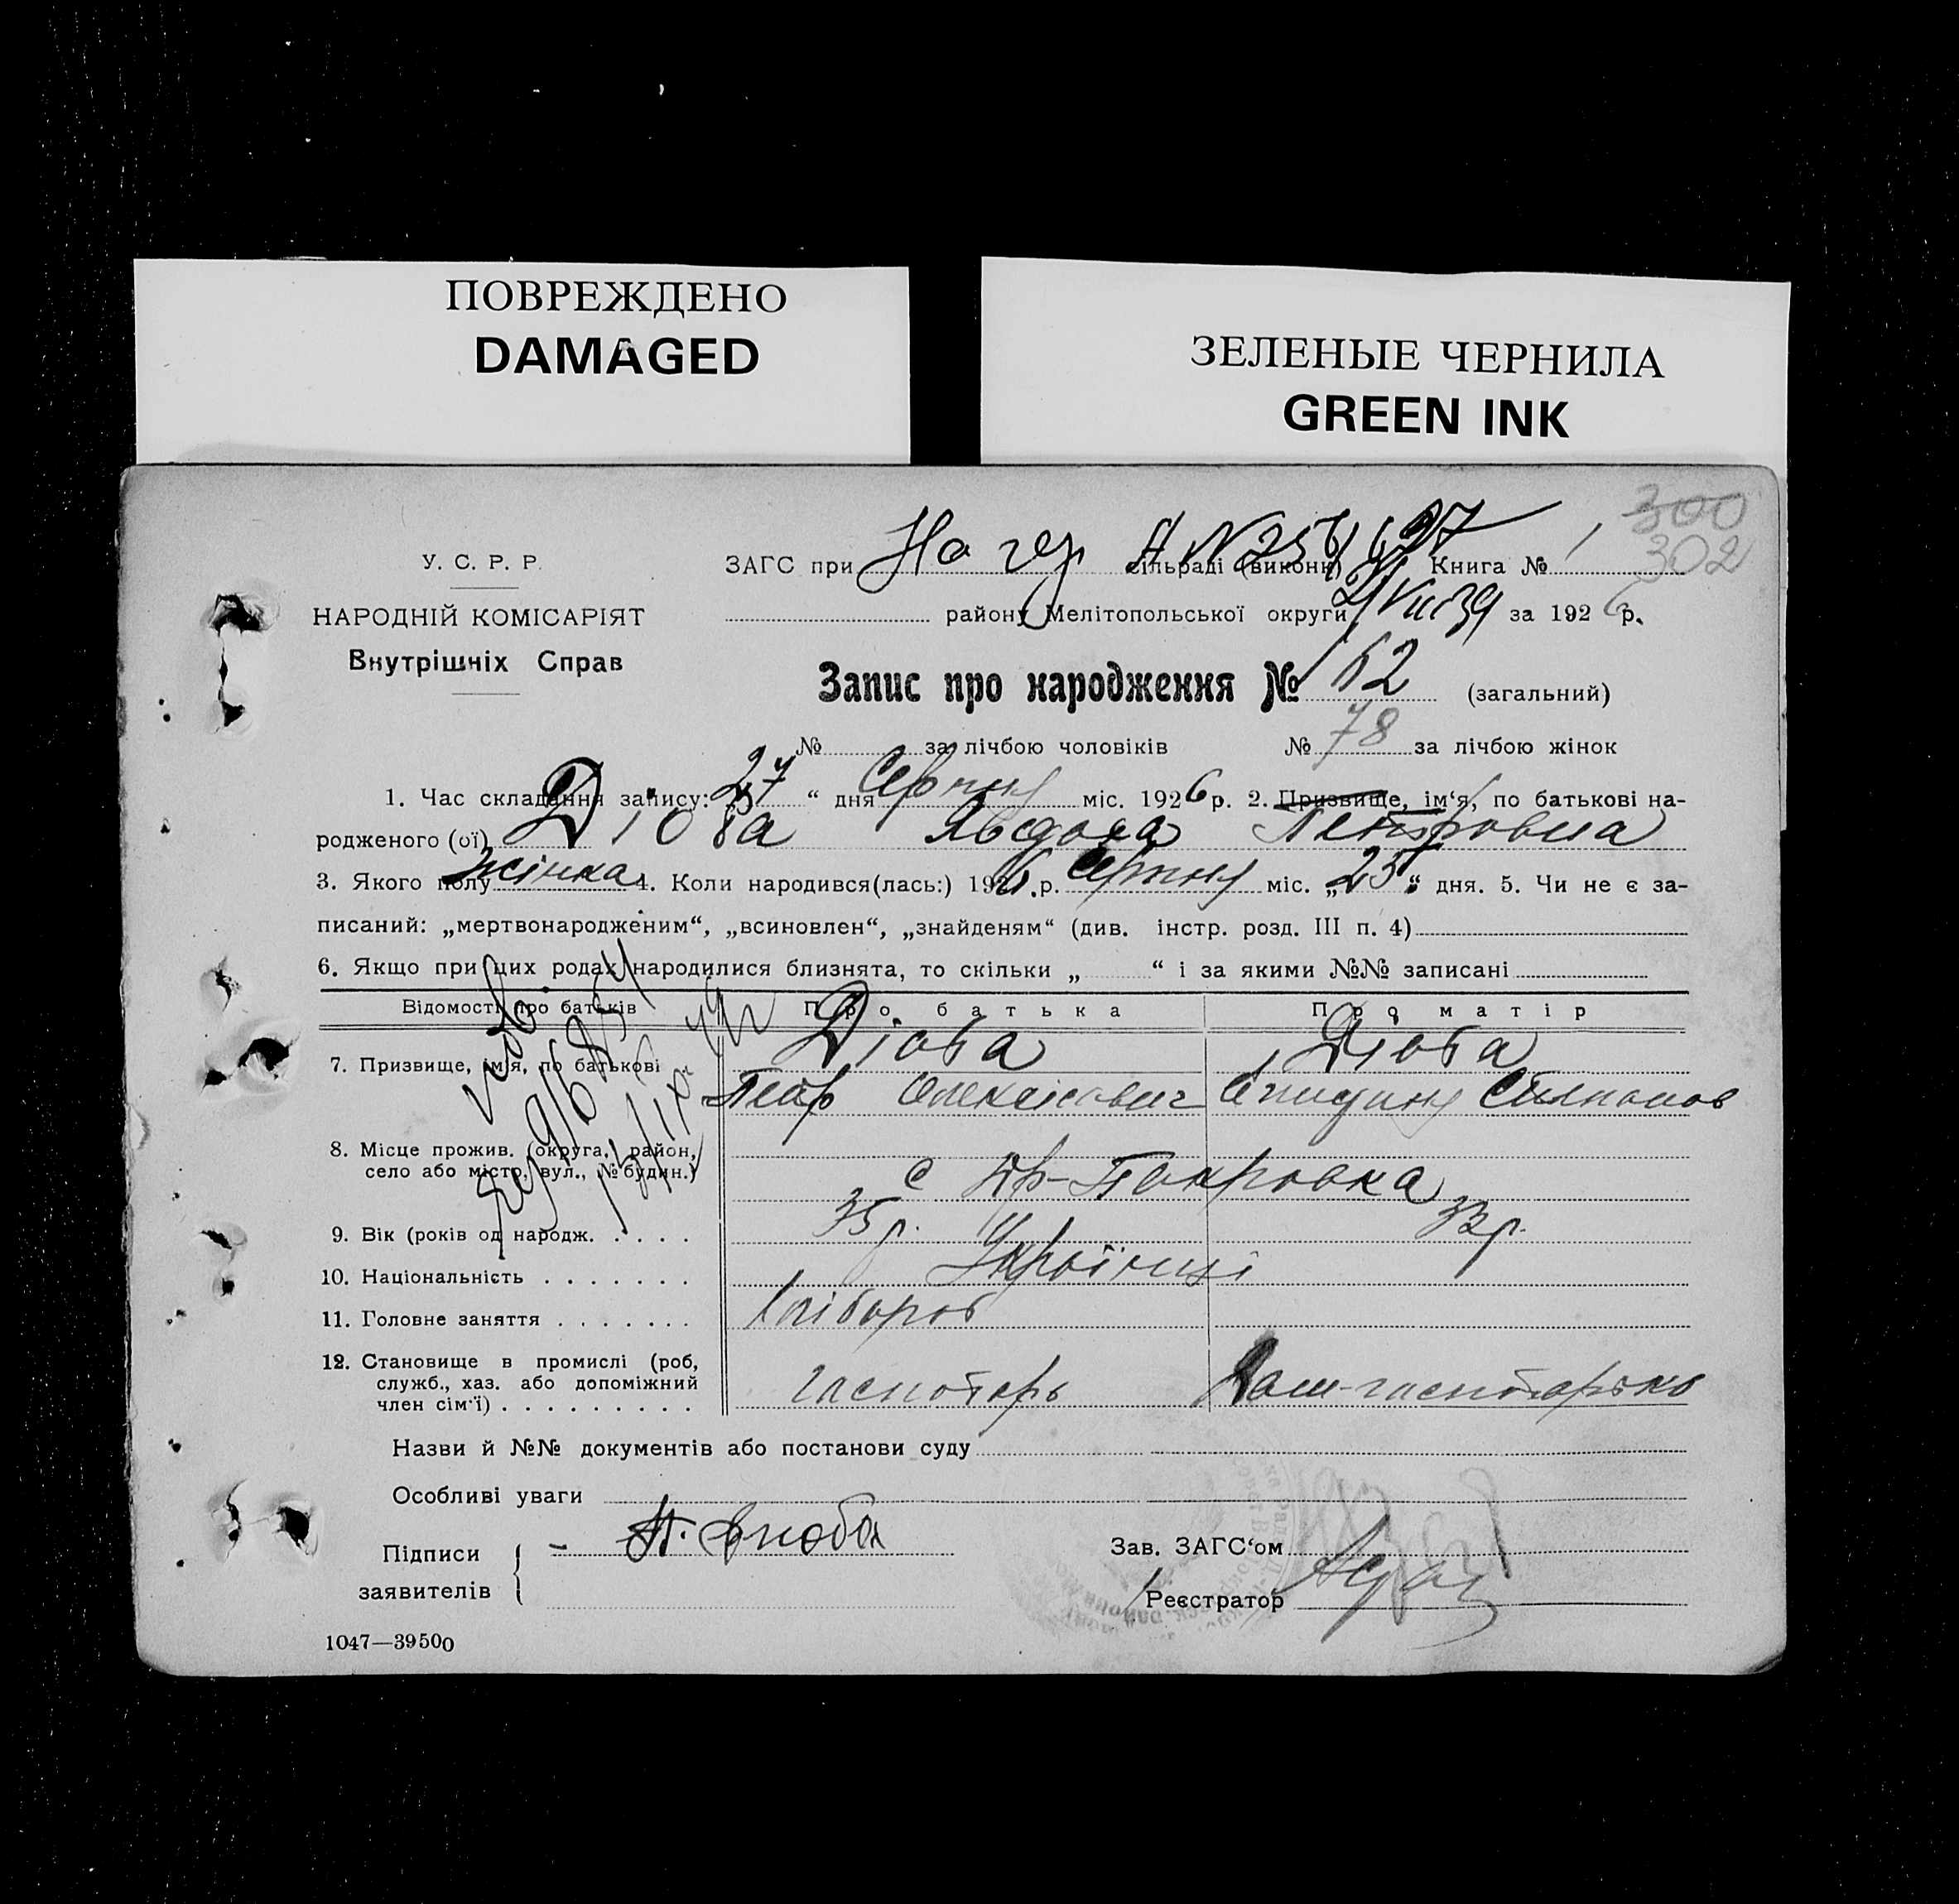 ПОВРЕЖДЕНО
DAMAGED
ЗЕЛЕНЫЕ ЧЕРНИЛА
GREEN INK
300
302
У. С. Р. Р.
НАРОДНІЙ КОМІСАРІЯТ
Внутрішніх Справ
ЗАГС при сільраді (виконк) Книга № 1
району Мелітопольської округи за 1926 р.
Запис про народження № 62 (загальний)
№ за лічбою чоловіків № 78 за лічбою жінок
1. Час складання запису: 27 “ дня Серпня міс. 1926 р. 2. Призвище, ім‘я, по батькові на-
родженого (ої) Дзюба Явдоха Петровна
3. Якого полу жінка 4. Коли народився(лась:) 1926 р. Серпня міс. „25“ дня. 5. Чи не є за-
писаний: „мертвонародженим“, „всиновлен“, „знайденям“ (див. інстр. розд. III п. 4)
6. Якщо при цих родах народилися близнята, то скільки „ “ і за якими №№ записані
Відомості про батьків Про батька Про матір
7. Призвище, ім‘я, по батькові Дзюба Дзюба
Петр Олексієвич
8. Місце прожив. (округа, район,
село або місто, вул., № будин.) с Покровка
9. Вік (років од народж. 35 р. 33 р.
10. Національність Українці
11. Головне заняття Хлібороб
12. Становище в промислі (роб,
служб., хаз. або допоміжний
член сім‘ї) господарь
Назви й №№ документів або постанови суду
Особливі уваги
Підписи
заявителів
Зав. ЗАГС‘ом
Реєстратор
1047—39500